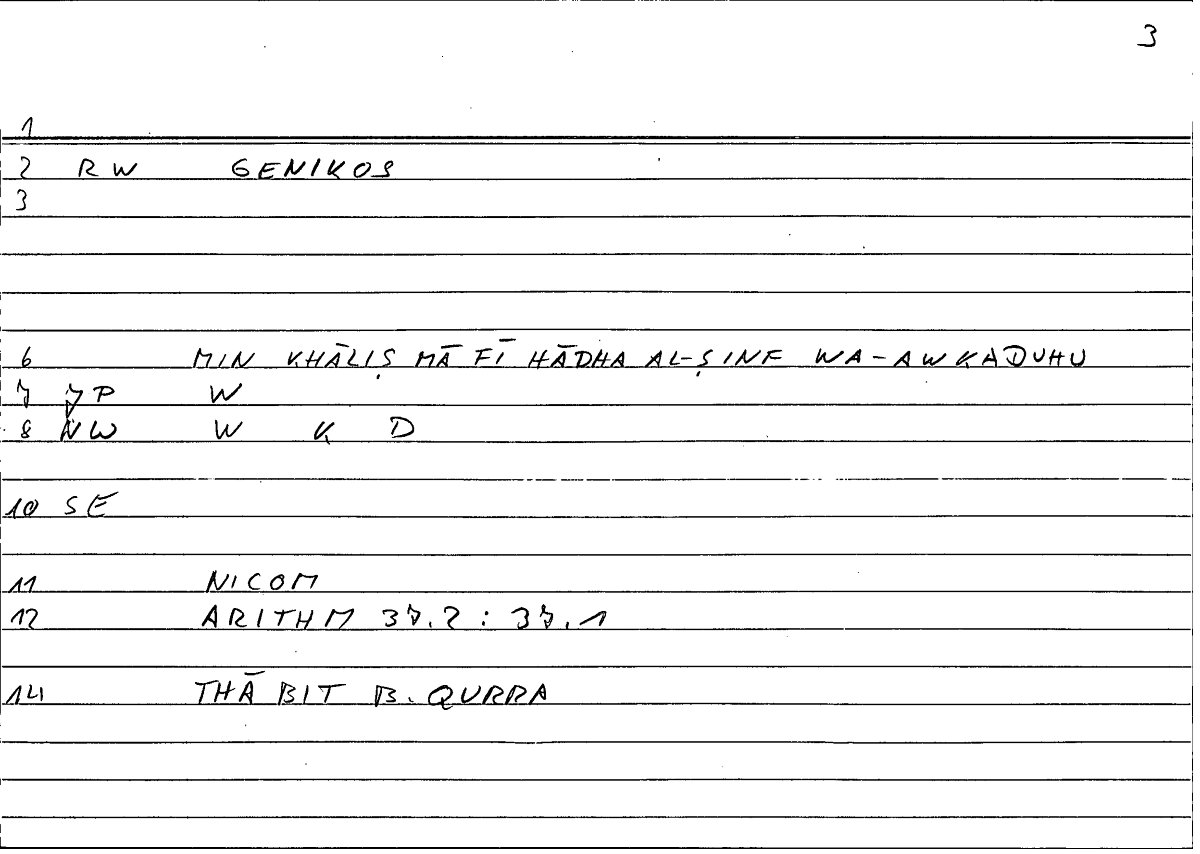 3
1
2 RW GENIKOS
3
6 MIN KHĀLIṢ MĀ FĪ HĀDHA AL-ṢINF WA-AWKADUHU
7 JP W
8 NW W K D
10 SE
11 NICOM
12 ARITHM 37.2 : 37.1
14 THĀBIT B. QURRA